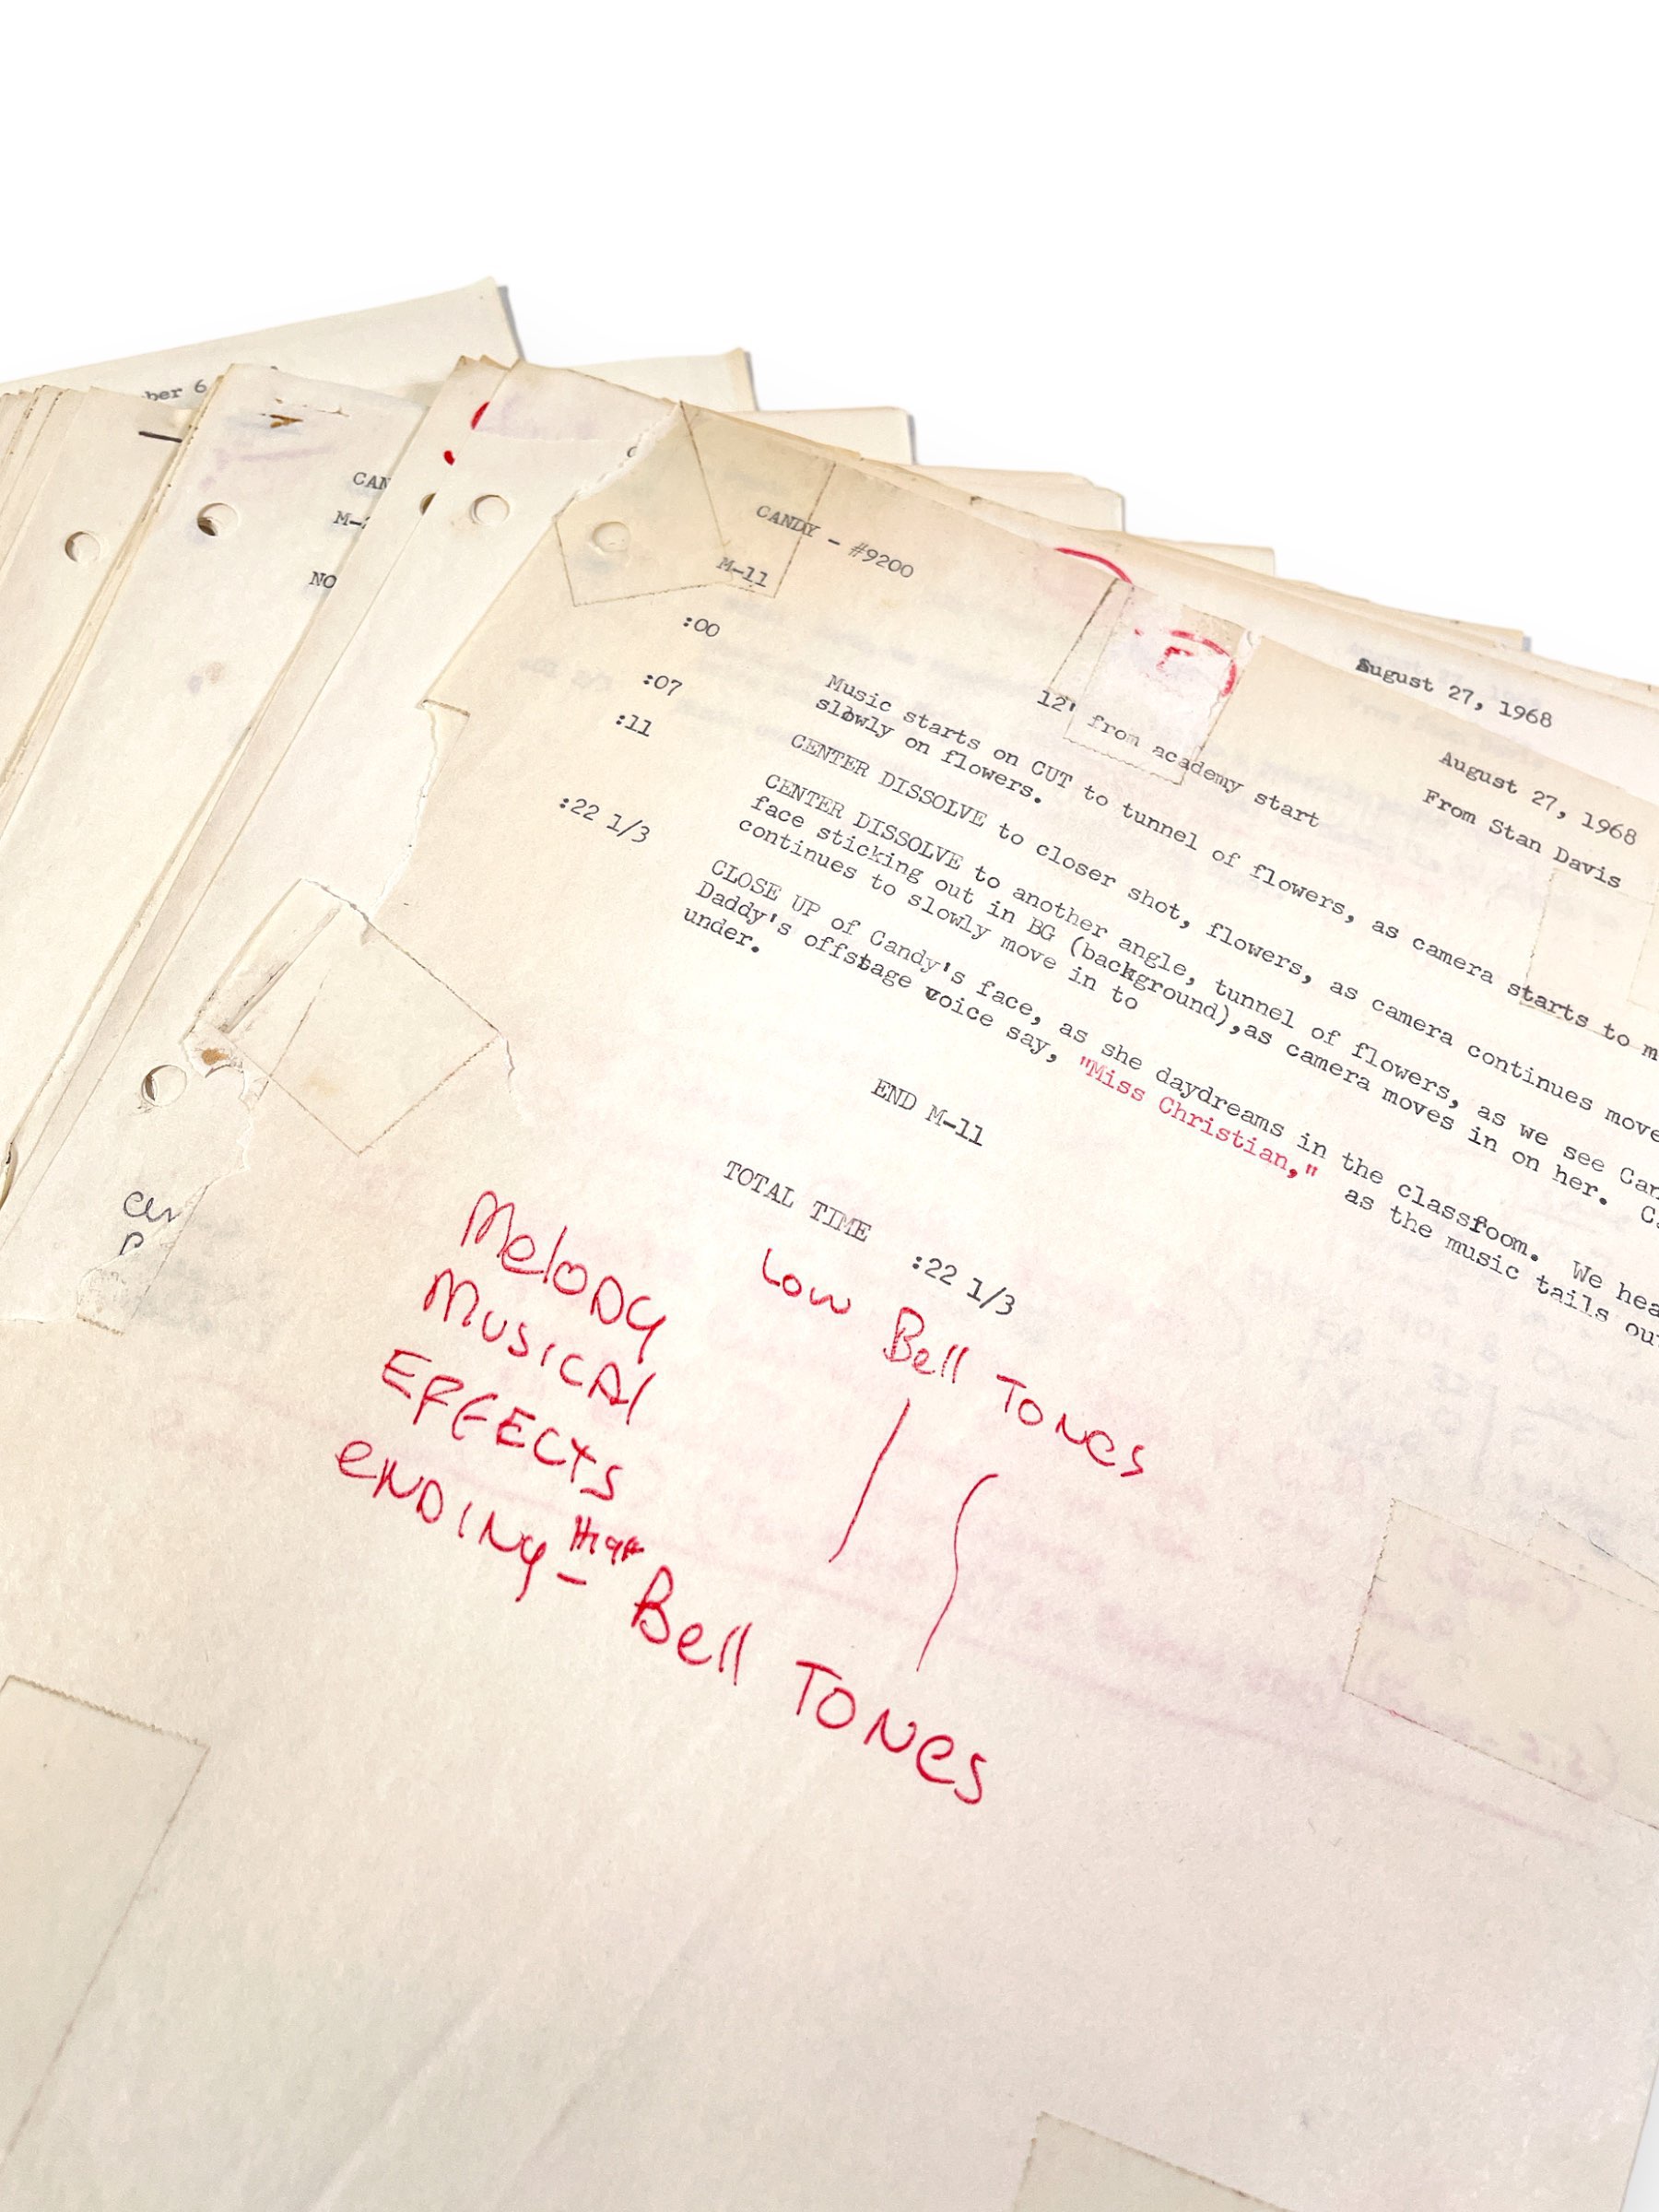 ber 6
CAN
M-
NO
CANDY - #9200
M-11
August 27, 1968
August 27, 1968
From Stan Davis
12' from academy start
:00
Music starts on CUT to tunnel of flowers, as camera starts to m
slowly on flowers.
:07
CENTER DISSOLVE to closer shot, flowers, as camera continues move
:11
CENTER DISSOLVE to another angle, tunnel of flowers, as we see Can
face sticking out in BG (background),as camera moves in on her. Ca
continues to slowly move in to
:22 1/3
CLOSE UP of Candy's face, as she daydreams in the classroom. We hea
Daddy's offstage voice say, "Miss Christian," as the music tails out
under.
END M-11
TOTAL TIME :22 1/3
Melody
Musical
Effects
ending - High Bell Tones
Low Bell Tones